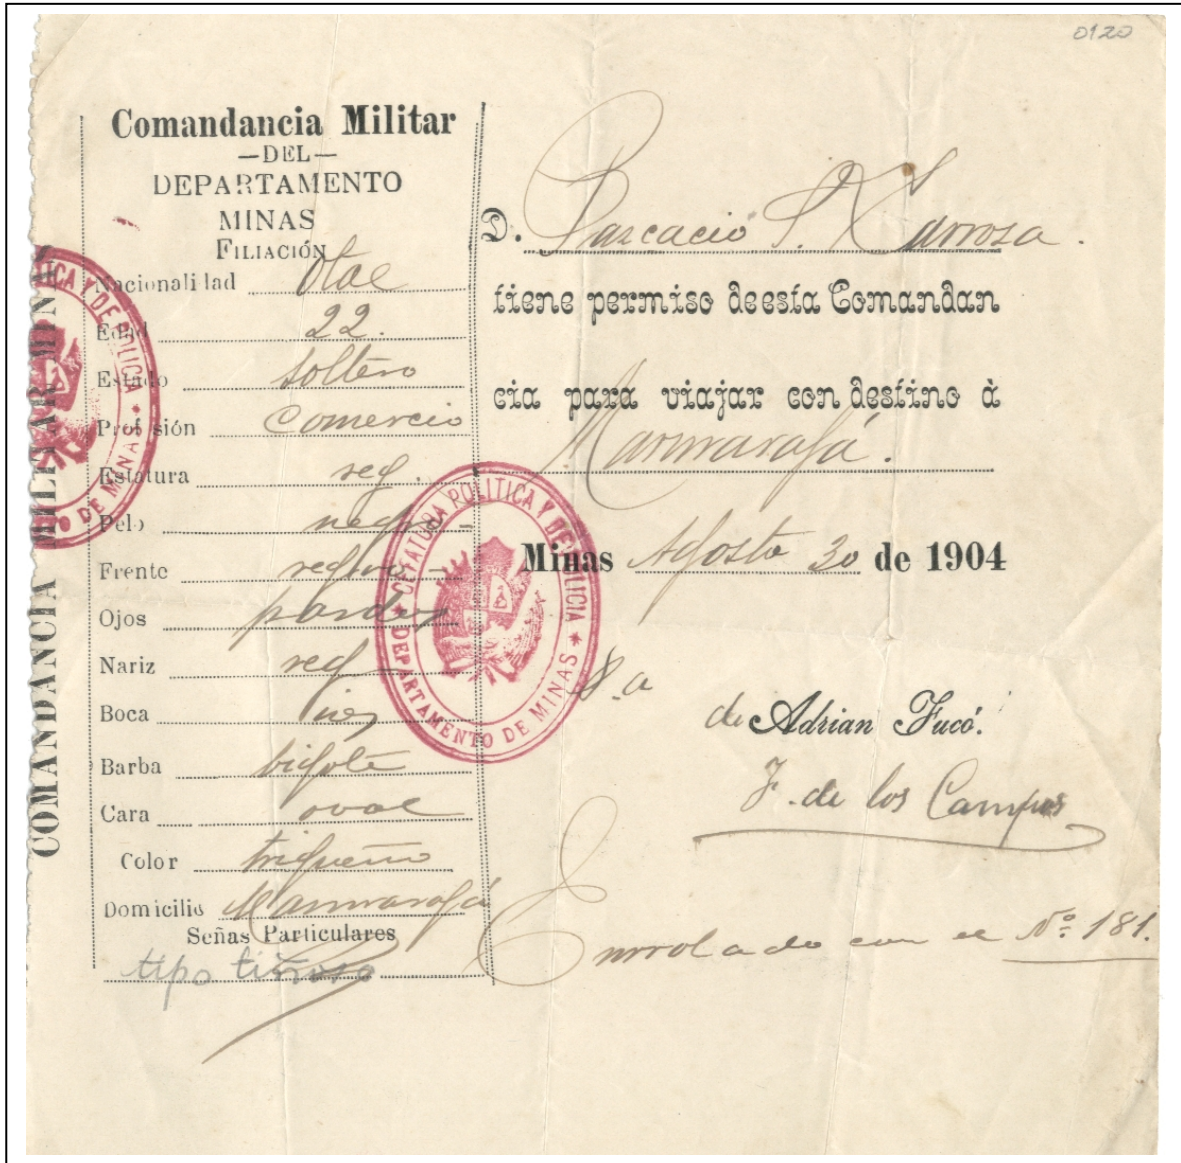 0120
Comandancia Militar
—DEL—
DEPARTAMENTO
MINAS
FILIACIÓN
Nacionalidad Otal
Edad 22.
Estado soltero
Profesión Comercio
Estatura reg.
Pelo negro
Frente regular
Ojos pardos
Nariz reg
Boca
Barba bigote
Cara oval
Color trigueño
Domicilio Marmarajá
Señas Particulares
tipo
COMANDANCIA MILITAR MINAS
JEFATURA POLITICA Y DE POLICIA
DEPARTAMENTO DE MINAS
D. Pancacio P. Larrosa.
tiene permiso de esta Comandan
cia para viajar con destino à
Marmarajá.
Minas Agosto 30 de 1904
P. a
de Adrian Fucó.
F. de los Campos
Enrolado con el Nº 181.